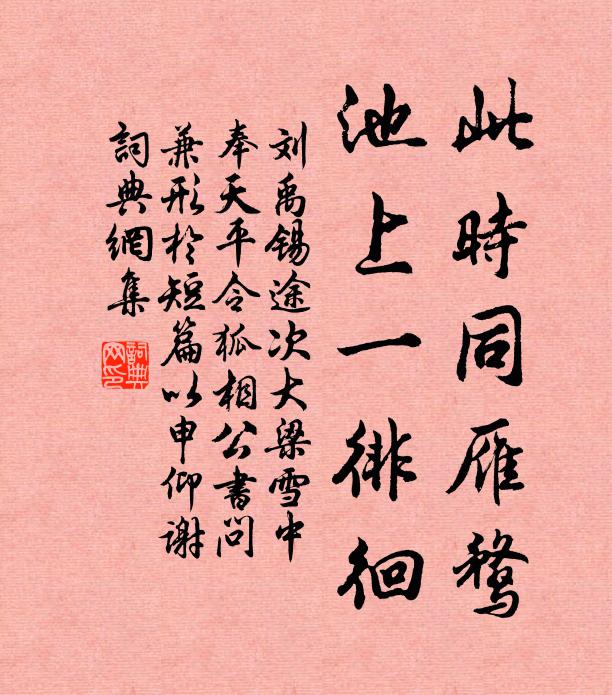 此時同雁鶩
池上一徘徊
刘禹锡途次大梁雪中
奉天平令狐相公書問
兼形於短篇以申仰謝
詞典網集
詞典网印